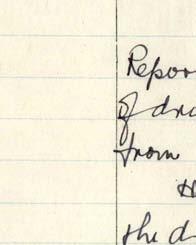 Repor
of dra
from
H
the d